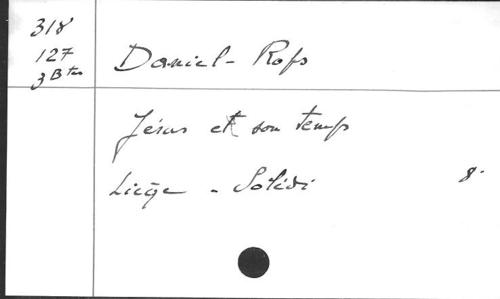 318
127
3 B tes
Daniel-Rops
Jésus et son temps
Liège - Solédi
8.